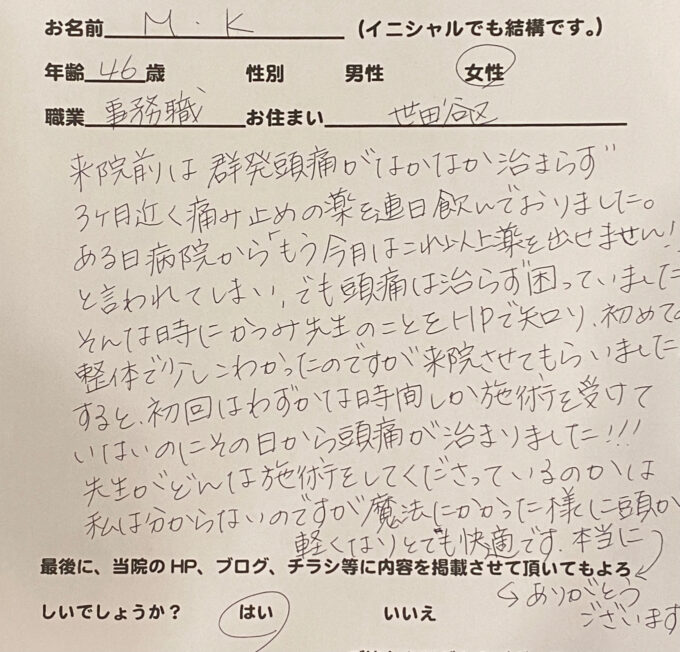 お名前 M.K (イニシャルでも結構です。)
年齢 46 歳 性別 男性 女性
職業 事務職 お住まい 世田谷区
来院前は群発頭痛がなかなか治まらず
3ヶ月近く痛み止めの薬を連日飲んでおりました。
ある日病院から「もう今月はこれ以上薬を出せません!
と言われてしまい、でも頭痛は治らず困っていました
そんな時にかつみ先生のことをHPで知り、初めての
整体で少しこわかったのですが来院させてもらいました
すると、初回はわずかな時間しか施術を受けて
いないのにその日から頭痛が治まりました!!!
先生がどんな施術をしてくださっているのかは
私は分からないのですが魔法にかかった様に頭が
軽くなりとても快適です。本当に
最後に、当院のHP、ブログ、チラシ等に内容を掲載させて頂いてもよろ
ありがとう
しいでしょうか? はい いいえ
ございます